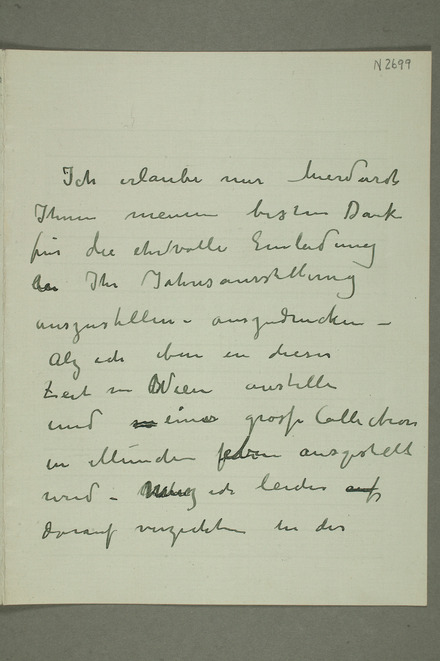 N 2699
Ich erlaube mir hierdurch
Ihnen meinen besten Dank
für die ehrvolle Einladung
Ihr Jahresausstellung
auszustellen - auszudrucken -
Als ich eben in dieser
Zeit in Wien austelle
und eine grosse Collection
in München ausgestellt
wird - muss ich leider
darauf verzichten in der